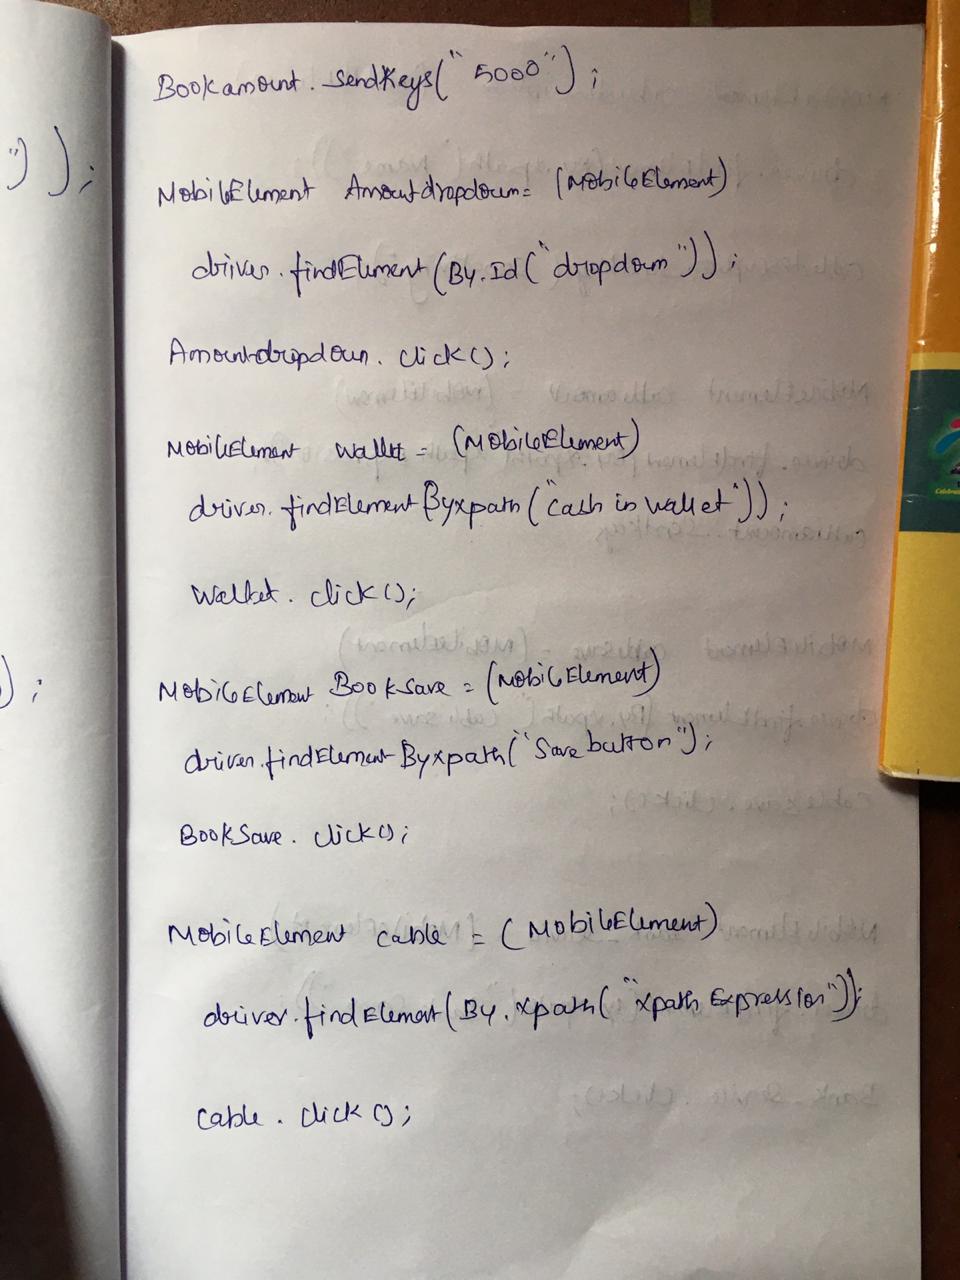 "));
Bookamount. SendKeys("5000");
MobilElement Amoutdropdown= (MobileElement)
driver.findElement(By.Id("dropdown"));
Amountdropdown. Click();
MobilElement Wallet = (MobileElement)
driver.findElement Byxpath("Cash in Wallet"));
Wallet. Click();
);
MobileElement BookSave = (MobilElement)
driver.findElement Byxpath("Save button");
BookSave. Click();
MobileElement Cable = (MobileElement)
driver.findElement(By.xpath("xpath Expression"));
Cable. Click();